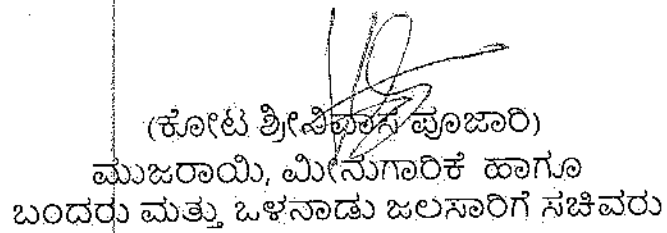 (ಕೋಟ ಶ್ರೀನಿವಾಸ ಪೂಜಾರಿ)
ಮುಜರಾಯಿ, ಮೀನುಗಾರಿಕೆ ಹಾಗೂ
ಬಂದರು ಮತ್ತು ಒಳನಾಡು ಜಲಸಾರಿಗೆ ಸಚಿವರು